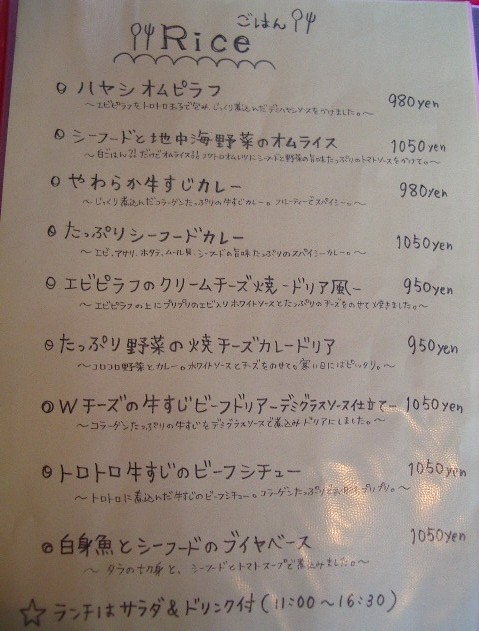 ごはん
Rice
ハヤシオムピラフ 980yen
〜エビピラフをトロトロ玉子で包み じっくり煮込んだデミハヤシソースをかけました。〜
シーフードと地中海野菜のオムライス 1050yen
〜白ごはん だけどオムライス トロトロオムレツにシーフードと野菜の旨味たっぷりのトマトソースをかけて。〜
やわらか牛すじカレー 980yen
〜じっくり煮込んだコラーゲンたっぷりの牛すじカレー。フルーティーでスパイシー。〜
たっぷりシーフードカレー 1050yen
〜エビ、アサリ、ホタテ、ムール貝、シーフードの旨味たっぷりのスパイシーカレー。〜
エビピラフのクリームチーズ焼ードリア風ー 950yen
〜エビピラフの上にプリプリのエビ入りホワイトソースとたっぷりのチーズをのせて焼きました。〜
たっぷり野菜の焼チーズカレードリア 950yen
〜コロコロ野菜とカレー。ホワイトソースとチーズをのせて。寒い日にはピッタリ。〜
Wチーズの牛すじビーフドリアーデミグラスソース仕立てー 1050yen
〜コラーゲンたっぷりの牛すじをデミグラスソースで煮込みドリアにしました。〜
トロトロ牛すじのビーフシチュー 1050yen
〜トロトロに煮込んだ牛すじのビーフシチュー。コラーゲンたっぷりで プリプリ。〜
白身魚とシーフードのブイヤベース 1050yen
〜タラの切り身と、シーフードとトマトスープで煮込みました。〜
☆ ランチはサラダ&ドリンク付(11:00〜16:30)